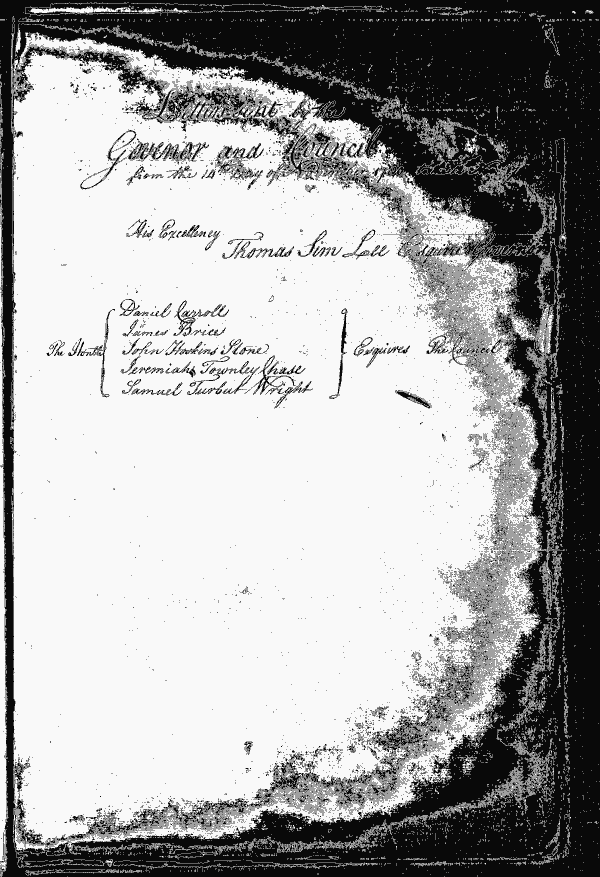 Letters sent by the
Govenor and Council
from the 14th Day of November
His Excellency
Thomas Sim Lee Esquire Govenor
Daniel Carroll
James Brice
The Honble John Hoskins Stone Esquires The Council
Jeremiah Townley Chase
Samuel Turbut Wright